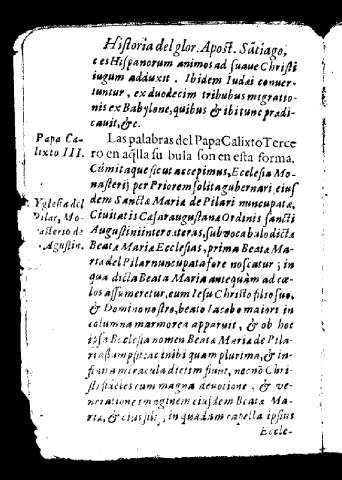 Historia del glor. Apost. Sãtiago,
ces Hispanorum animos ad suave Christi
iugum adduxit. Ibidem Iudæi conver-
tuntur, ex duodecim tribubus migratio-
nis ex Babylone, quibus & ibi tunc prædi-
cavit, &c.
Papa Ca-
lixto III.
Las palabras del Papa Calixto Terce
ro en aq̃lla su bula son en esta forma.
Cúmitaque sicut accepimus, Ecclesia Mo-
nasterij per Priorem solita gubernari, eius
dem Sanctæ Mariæ de Pilari nuncupatæ,
Yglesia del
Pilar, Mo-
nasterio de
S. Agustin.
Ciuitatis Cæsaraugustanæ Ordinis sancti
Augustini inter cæteras, sub vocabulo dictæ
Beatæ Mariæ Ecclesias, prima Beatæ Ma-
riæ del Pilar nuncupata fore noscatur; in
qua dicta Beata Maria antequàm ad cæ-
los assumeretur, cum Iesu Christo filio suo,
& Domino nostro, beato Iacobo maiori in
columna marmorea apparuit, & ob hoc
ipsa Ecclesia nomen Beatæ Mariæ de Pila-
ri assumpsit: ac inibi quam plurima, & in-
finita miracula dietim fiunt, necnõ Chri-
sti fideles cum magna devotione, & ve-
neratione imaginem eiusdem Beatæ Ma-
riæ, & eius filij, in quadam capella ipsius
Eccle-